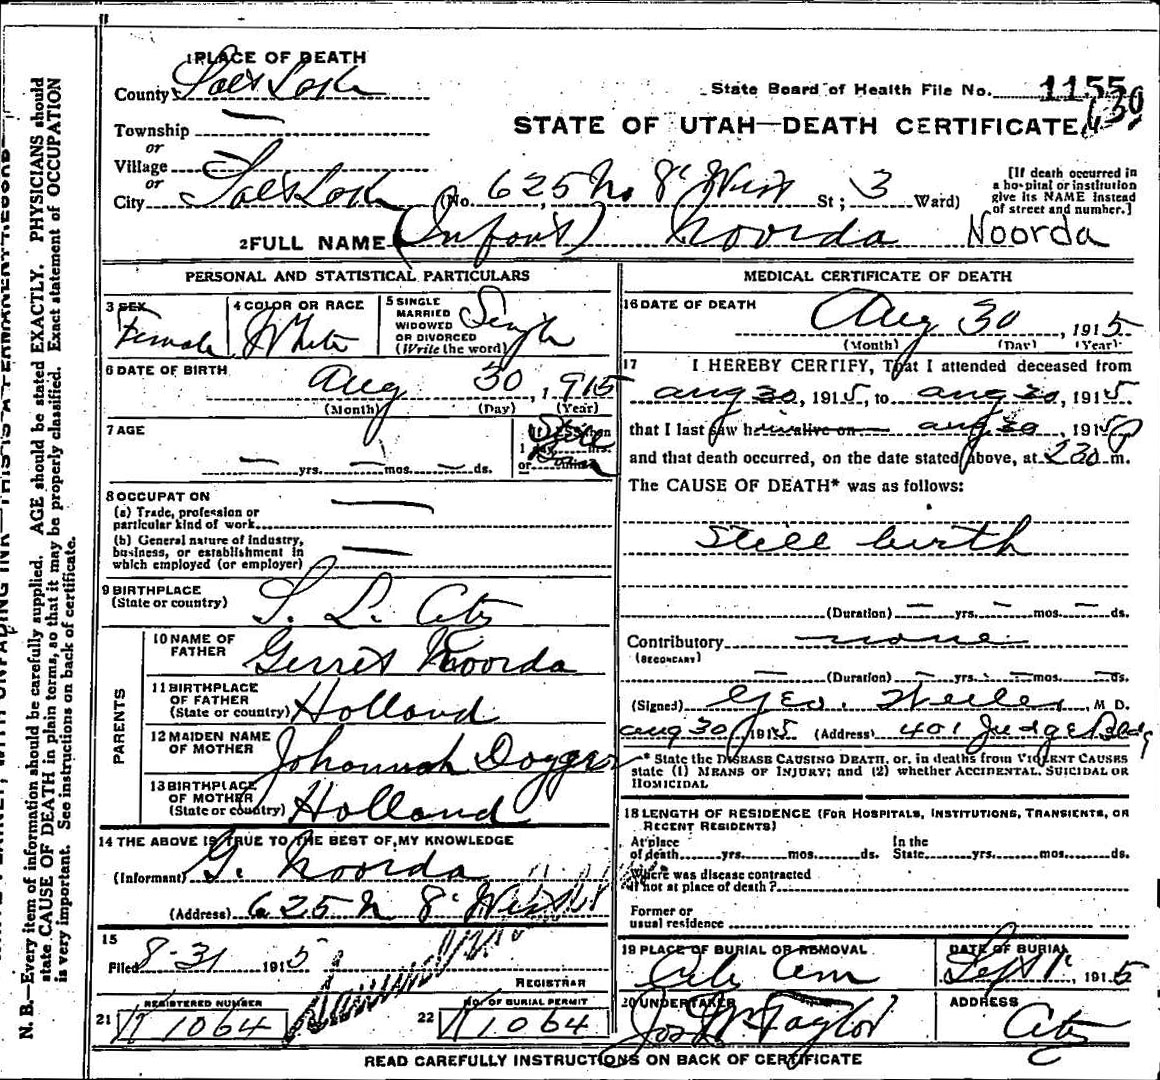 1 PLACE OF DEATH
County Salt Lake
State Board of Health File No. 1155
Township —
or
STATE OF UTAH—DEATH CERTIFICATE
Village
or
City Salt Lake (No. 625 No 8" West St; 3 Ward)
[If death occurred in
a hospital or institution
give its NAME instead
of street and number.]
2 FULL NAME (Infant) Noorda Noorda
PERSONAL AND STATISTICAL PARTICULARS
3 SEX
Female
4 COLOR OR RACE
White
5 SINGLE
MARRIED
WIDOWED
OR DIVORCED
(Write the word)
Single
6 DATE OF BIRTH
Aug 30, 1915
(Month) (Day) (Year)
7 AGE
— yrs. — mos. — ds.
Still Born
8 OCCUPATION
(a) Trade, profession or
particular kind of work —
(b) General nature of industry,
business, or establishment in
which employed (or employer) —
9 BIRTHPLACE
(State or country) S. L. City
PARENTS
10 NAME OF
FATHER Gerrit Noorda
11 BIRTHPLACE
OF FATHER
(State or country) Holland
12 MAIDEN NAME
OF MOTHER Johannah Dogger
13 BIRTHPLACE
OF MOTHER
(State or country) Holland
14 THE ABOVE IS TRUE TO THE BEST OF MY KNOWLEDGE
(Informant) G. Noorda
(Address) 625 N 8" West
15
Filed 8-31 1915
REGISTRAR
REGISTERED NUMBER
21 K 1064
NO. OF BURIAL PERMIT
22 K 1064
MEDICAL CERTIFICATE OF DEATH
16 DATE OF DEATH
Aug 30, 1915
(Month) (Day) (Year)
17 I HEREBY CERTIFY, That I attended deceased from
Aug 30, 1915, to Aug 30, 1915
that I last saw h alive on Aug 30, 1915
and that death occurred, on the date stated above, at 230 P m.
The CAUSE OF DEATH* was as follows:
Still birth
(Duration) — yrs. — mos. — ds.
Contributory none
(SECONDARY)
(Duration) — yrs. — mos. — ds.
(Signed) Geo. , M D.
Aug 30 1915 (Address) 401 Judge Bldg
* State the DISEASE CAUSING DEATH, or, in deaths from VIOLENT CAUSES
state (1) MEANS OF INJURY; and (2) whether ACCIDENTAL, SUICIDAL OR
HOMICIDAL
18 LENGTH OF RESIDENCE (FOR HOSPITALS, INSTITUTIONS, TRANSIENTS, OR
RECENT RESIDENTS)
At place In the
of death yrs. mos. ds. State yrs. mos. ds.
Where was disease contracted
if not at place of death?
Former or
usual residence
19 PLACE OF BURIAL OR REMOVAL
City Cem
DATE OF BURIAL
Sept 1", 1915
20 UNDERTAKER
Jos Wm Taylor
ADDRESS
City
READ CAREFULLY INSTRUCTIONS ON BACK OF CERTIFICATE
N. B.—Every item of information should be carefully supplied. AGE should be stated EXACTLY. PHYSICIANS should
state CAUSE OF DEATH in plain terms, so that it may be properly classified. Exact statement of OCCUPATION
is very important. See instructions on back of certificate.